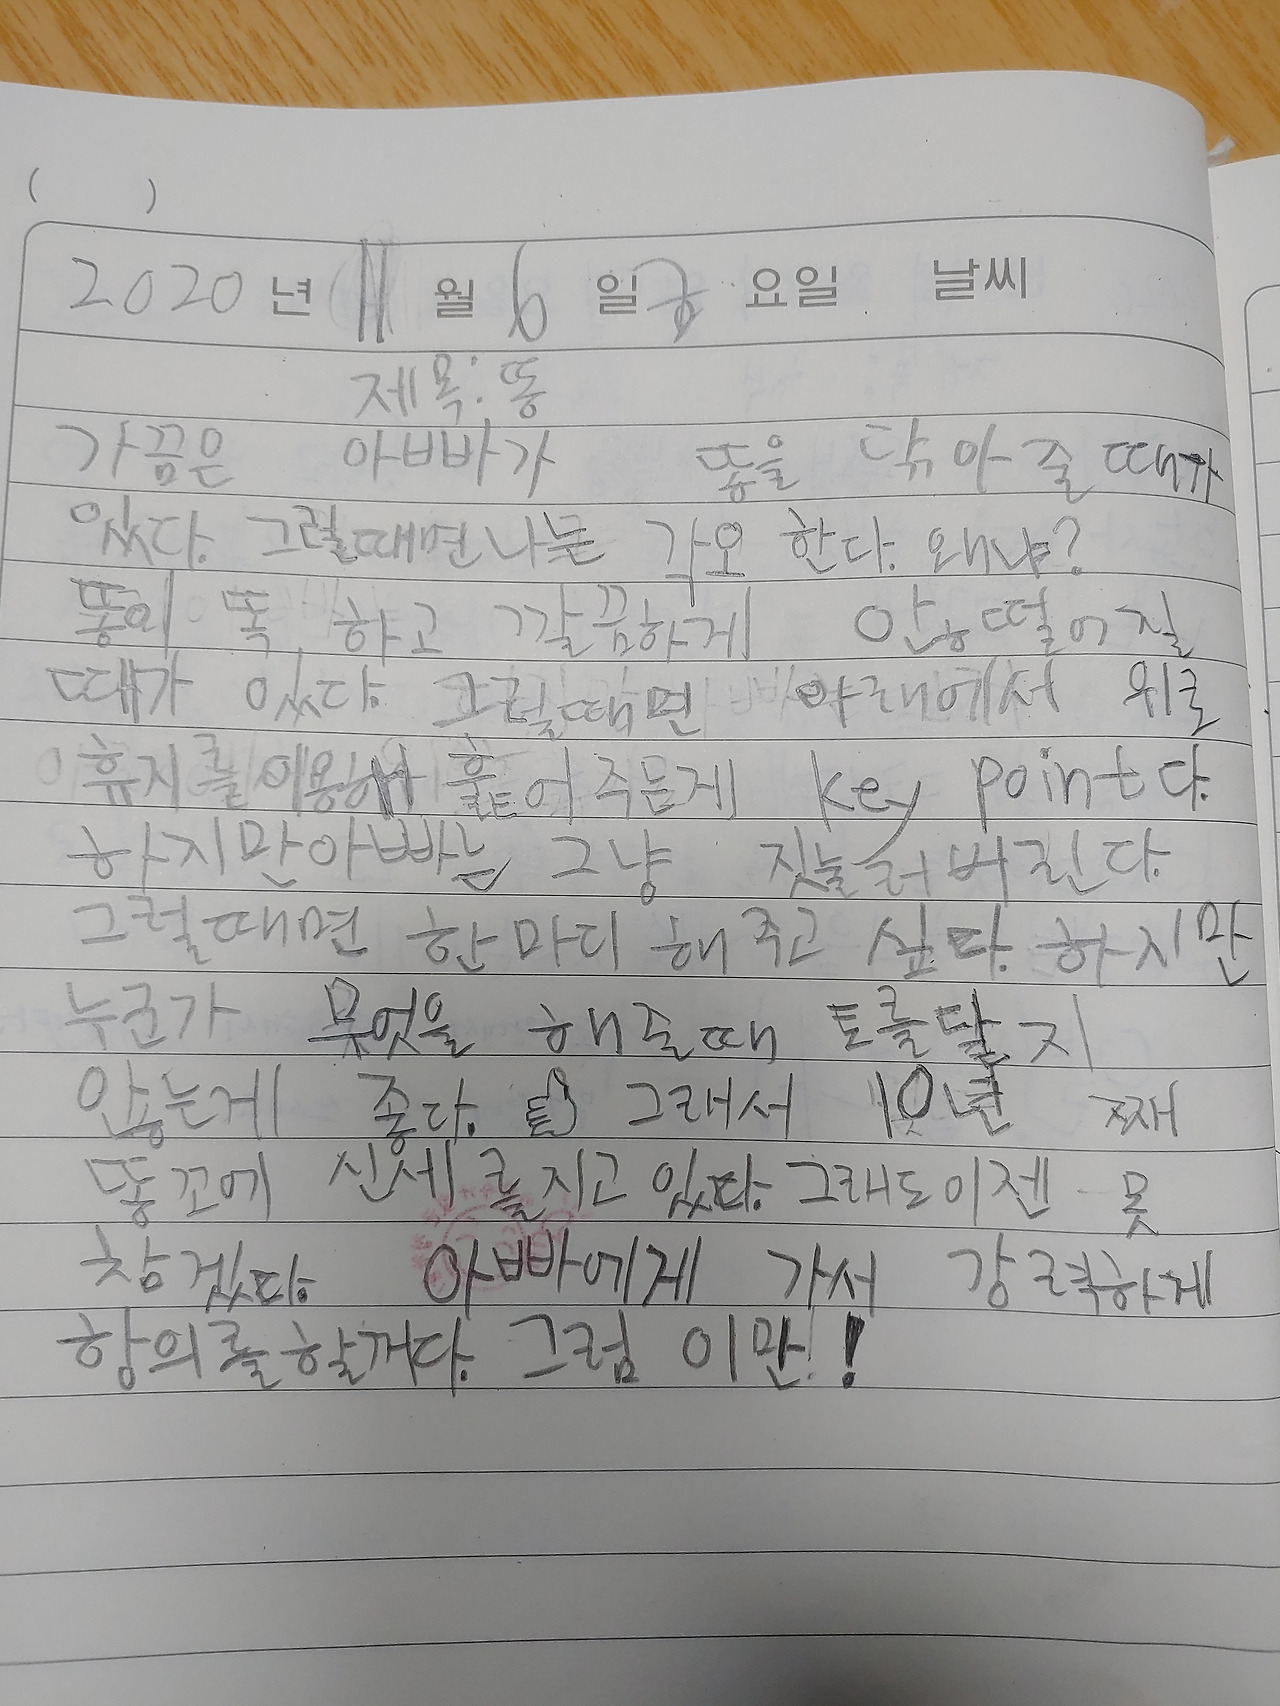 (          )
2020 년 11 월 6 일 금 요일 날씨
제목: 똥
가끔은 아빠가 똥을 닦아 줄때가
있다. 그럴때면 나는 각오 한다. 왜냐?
똥이 똑 하고 깔끔하게 않떨어질
때가 있다. 그럴때면 아래에서 위로
휴지를 이용해서 훑어주는게 key point다.
하지만 아빠는 그냥 짓눌러 버린다.
그럴때면 한마디 해 주고 싶다. 하지만
누군가 무엇을 해줄때 토를달지
않는게 좋다. 그래서 10년 째
똥꼬에 신세를 지고 있다. 그래도 이젠 못
참겠다. 아빠에게 가서 강력하게
항의를 할꺼다. 그럼 이만!!